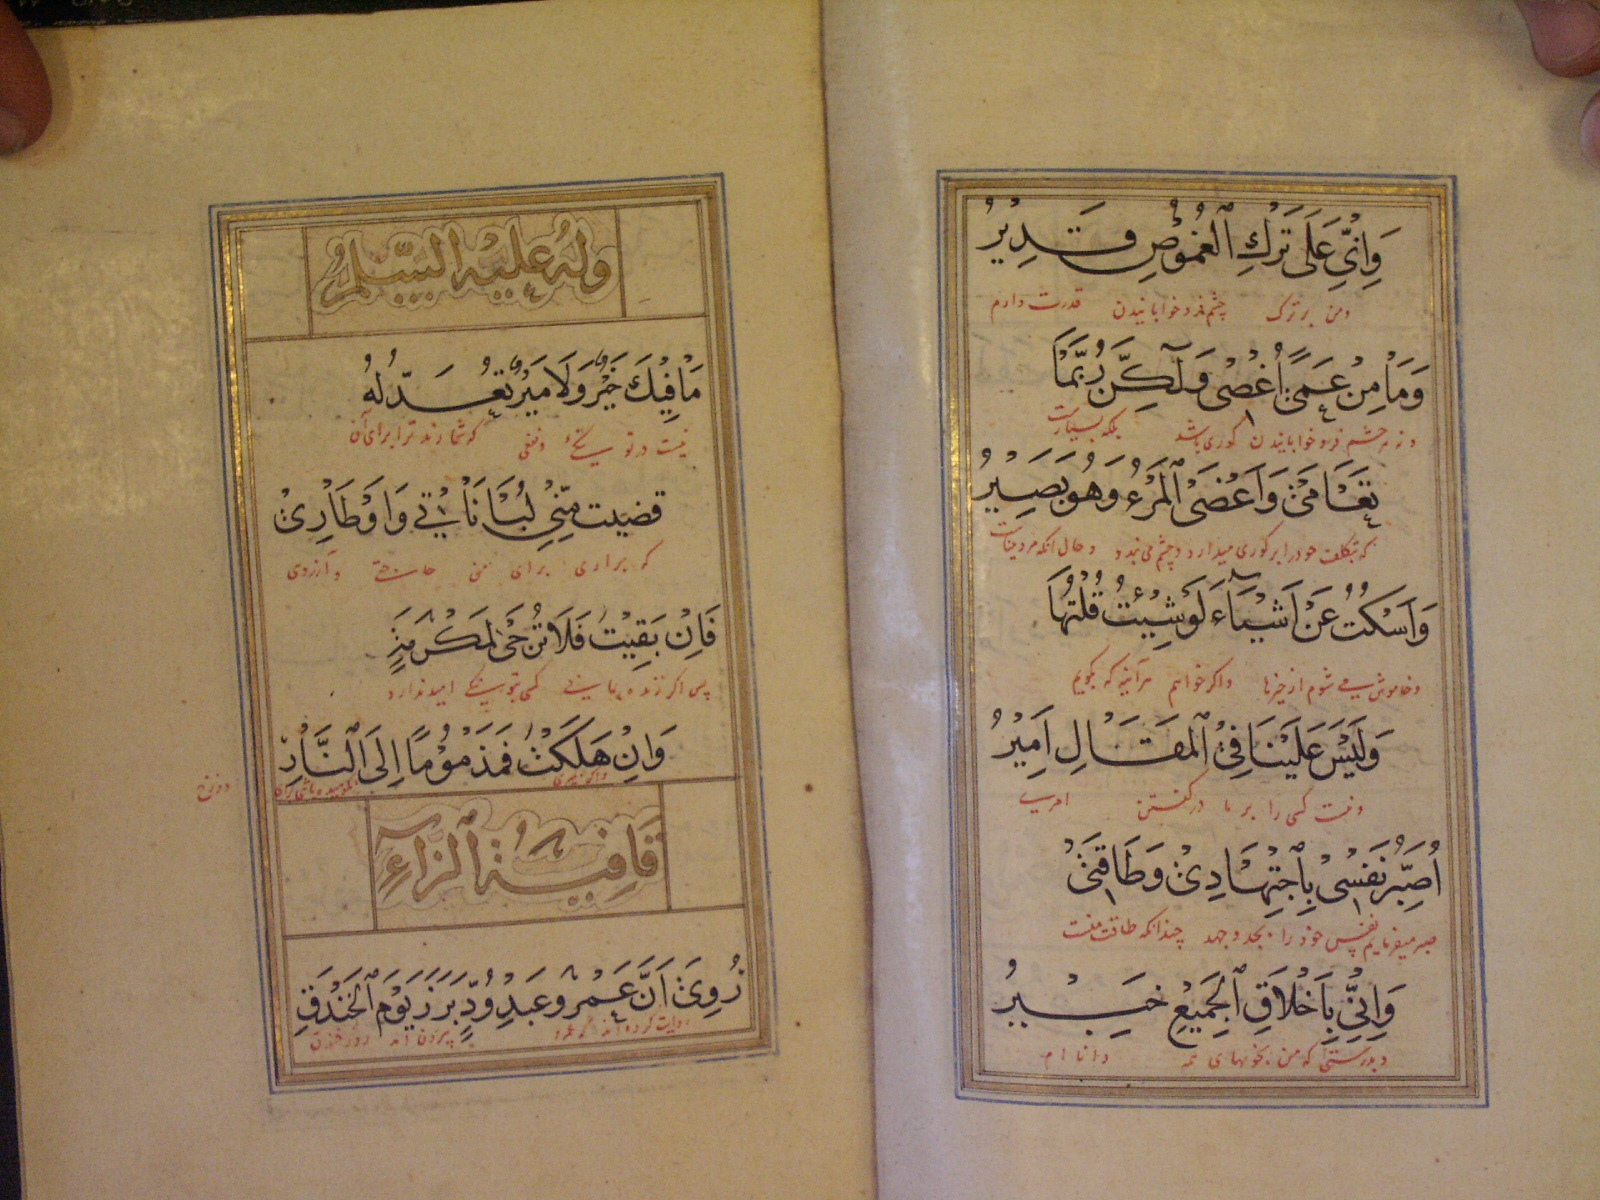 وَاِنّي عَلَى تَرْكِ الْغُمُوضِ قَدِيرُ
ومن بر ترک چشم فرو خوابانیدن قدرت دارم
وَمَا مِنْ عَمًى اُغْضِي وَلٰكِنْ رُبَّمَا
و نه چشم فرو خوابانیدن کوری باشد بلکه بسیار
تَعَامَى وَاَغْضَى الْمَرْءُ وَهُوَ بَصِيرُ
که بتکلف خود را بر کوری میدارد و چشم می بندد و حال آنکه مرد بیناست
وَاَسْكُتُ عَنْ اَشْيَاءَ لَوْ شِئْتُ قُلْتُهَا
و خاموش می شوم از چیزها و اگر خواهم هر آینه که بگویم
وَلَيْسَ عَلَيْنَا فِي الْمَقَالِ اَمِيرُ
و نیست کسی را بر ما در گفتن امیری
اُصَبِّرُ نَفْسِي بِاجْتِهَادِي وَطَاقَتِي
صبر میفرمایم نفس خود را بجد و جهد چندانکه طاقت منست
وَاِنّي بِاَخْلَاقِ الْجَمِيعِ خَبِيرُ
و بدرستی که من بخویهای همه دانا ام
وله عليه السلام
مَا فِيكَ خَيْرٌ وَلَا مَيْرٌ تُعَدُّ لَهُ
نیست در تو نفعی که شمارند ترا برای آن
قضيت مِنّي لُبَانَاتِي وَاَوْطَارِي
که براری برای من حاجتی و آرزوی
فَاِنْ بَقِيْتَ فَلَا تُرْجَى لِمَكْرُمَةٍ
پس اگر زنده بمانی کسی بتو امید ندارد
وَاِنْ هَلَكْتَ فَمَذْمُوْمًا اِلَى النَّارِ
دوزخ
قَافِيَةُ الزَّاءِ
رُوِيَ اَنَّ عَمْرو عَبْدِ وُدٍّ بَرَزَ يَوْمَ الْخَنْدَقِ
روایت کرده اند که عمرو بیرون آمد روز خندق